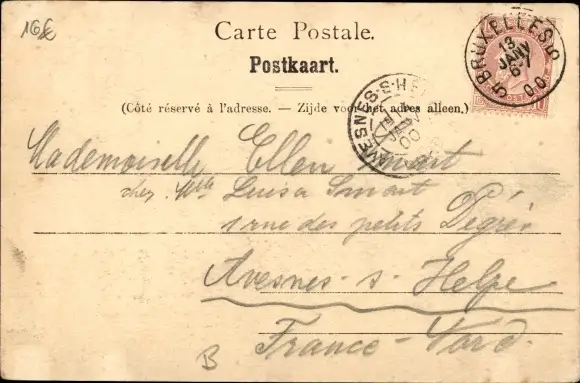 16€
Carte Postale.
Postkaart.
(Côté réservé à l'adresse. — Zijde voor het adres alleen.)
BRUXELLES 5
13
JANV
6-7
00
AVESNES-S-HE
JANV
00
Mademoiselle Ellen Smart
chez Mlle Luisa Smart
1 rue des petits Degrés
Avesnes-s-Helpe
France-Nord.
B